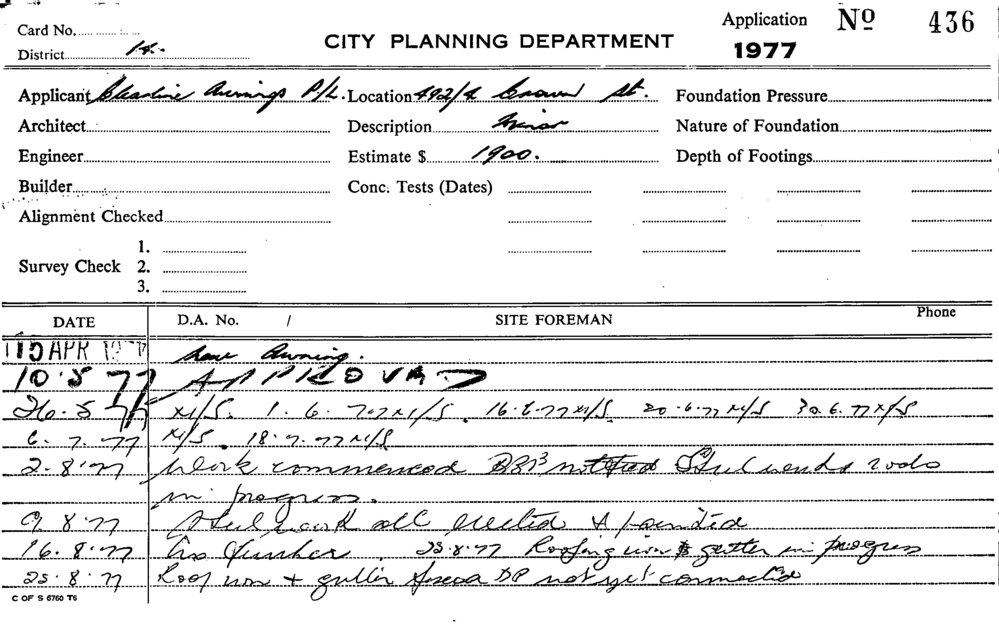 Card No.
District 14.
CITY PLANNING DEPARTMENT
Application No 436
1977
Applicant Clearline Awnings P/L. Location 492/4 Crown St. Foundation Pressure
Architect Description Minor Nature of Foundation
Engineer Estimate $ 1900. Depth of Footings
Builder Conc. Tests (Dates)
Alignment Checked
1.
Survey Check 2.
3.
DATE D.A. No. / SITE FOREMAN Phone
15 APR 1977 New Awning.
10.5.77 APPROVED
26.5.77 N/S. 1.6.77 N/S. 16.6.77 N/S. 20.6.77 N/S 30.6.77 N/S
6.7.77 N/S. 18.7.77 N/S
2.8.77 Work commenced notified Steel rods
in progress.
9.8.77 Steel work all erected & painted
16.8.77 No further. 23.8.77 Roofing iron & gutter in progress
25.8.77 Roof iron + gutter fascia DP not yet connected
C OF S 6760 T6